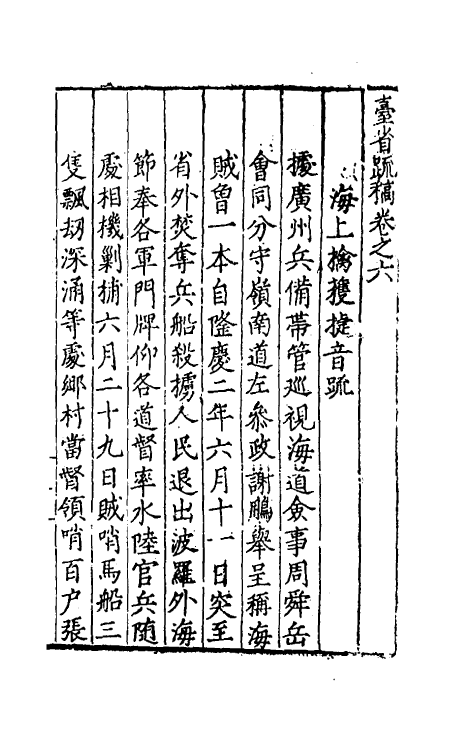 臺省䟽稿卷之六
海上擒獲捷音䟽
據廣州兵備帶管廵視海道僉事周舜岳
會同分守嶺南道左叅政謝鵬舉呈稱海
賊曾一本自隆慶二年六月十一日突至
省外焚奪兵船殺擄人民退出波羅外海
節奉各軍門牌仰各道督率水陸官兵随
處相機剿捕六月二十九日賊哨馬船三
隻飄刼深涌等處鄉村當督領哨百户張